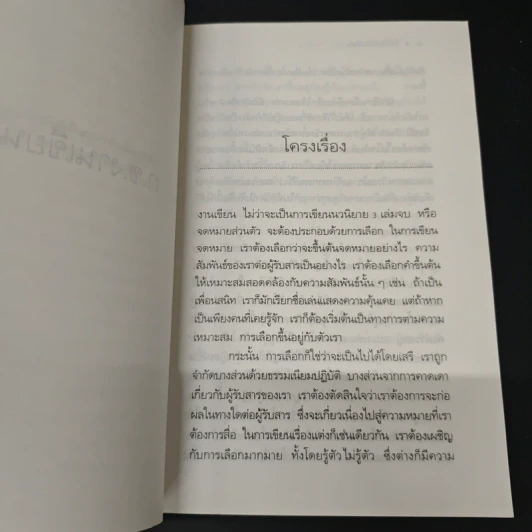 โครงเรื่อง
งานเขียน ไม่ว่าจะเป็นการเขียนนวนิยาย 3 เล่มจบ หรือ
จดหมายส่วนตัว จะต้องประกอบด้วยการเลือก ในการเขียน
จดหมาย เราต้องเลือกว่าจะขึ้นต้นจดหมายอย่างไร ความ
สัมพันธ์ของเราต่อผู้รับสารเป็นอย่างไร เราต้องเลือกคำขึ้นต้น
ให้เหมาะสมสอดคล้องกับความสัมพันธ์นั้น ๆ เช่น ถ้าเป็น
เพื่อนสนิท เราก็มักเรียกชื่อเล่นแสดงความคุ้นเคย แต่ถ้าหาก
เป็นเพียงคนที่เคยรู้จัก เราก็ต้องเริ่มต้นเป็นทางการตามความ
เหมาะสม การเลือกขึ้นอยู่กับตัวเรา
กระนั้น การเลือกก็ใช่ว่าจะเป็นไปได้โดยเสรี เราถูก
จำกัดบางส่วนด้วยธรรมเนียมปฏิบัติ บางส่วนจากการคาดเดา
เกี่ยวกับผู้รับสารของเรา เราต้องตัดสินใจว่าเราต้องการจะก่อ
ผลในทางใดต่อผู้รับสาร ซึ่งจะเกี่ยวเนื่องไปสู่ความหมายที่เรา
ต้องการสื่อ ในการเขียนเรื่องแต่งก็เช่นเดียวกัน เราต้องเผชิญ
กับการเลือกมากมาย ทั้งโดยรู้ตัวไม่รู้ตัว ซึ่งต่างก็มีความ